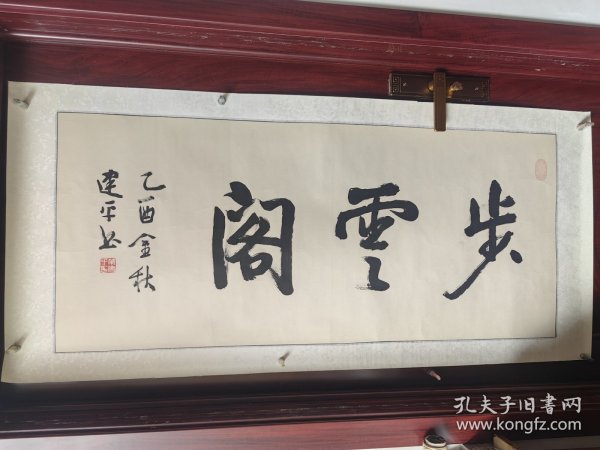 步雲閣
乙酉金秋
建平书
孔夫子旧書网
www.kongfz.com